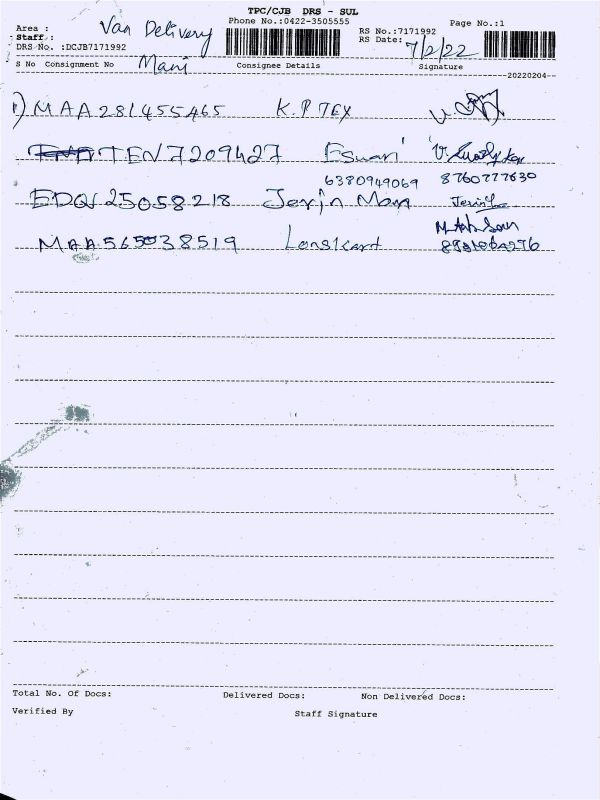 TPC/CJB DRS - SUL
Area : Van Delivery Phone No.:0422-3505555 RS No.:7171992 Page No.:1
Staff :
DRS No. :DCJB7171992 RS Date: 7/2/22
S No Consignment No Mani Consignee Details Signature
20220204
1) MAA281455465 K.P TEX
TEN7209427 Eswari
6380949069 8760777630
EDQ125058218 Jerin Mon Jerin
MAA565038519 Lenskart
Total No. Of Docs: Delivered Docs: Non Delivered Docs:
Verified By Staff Signature